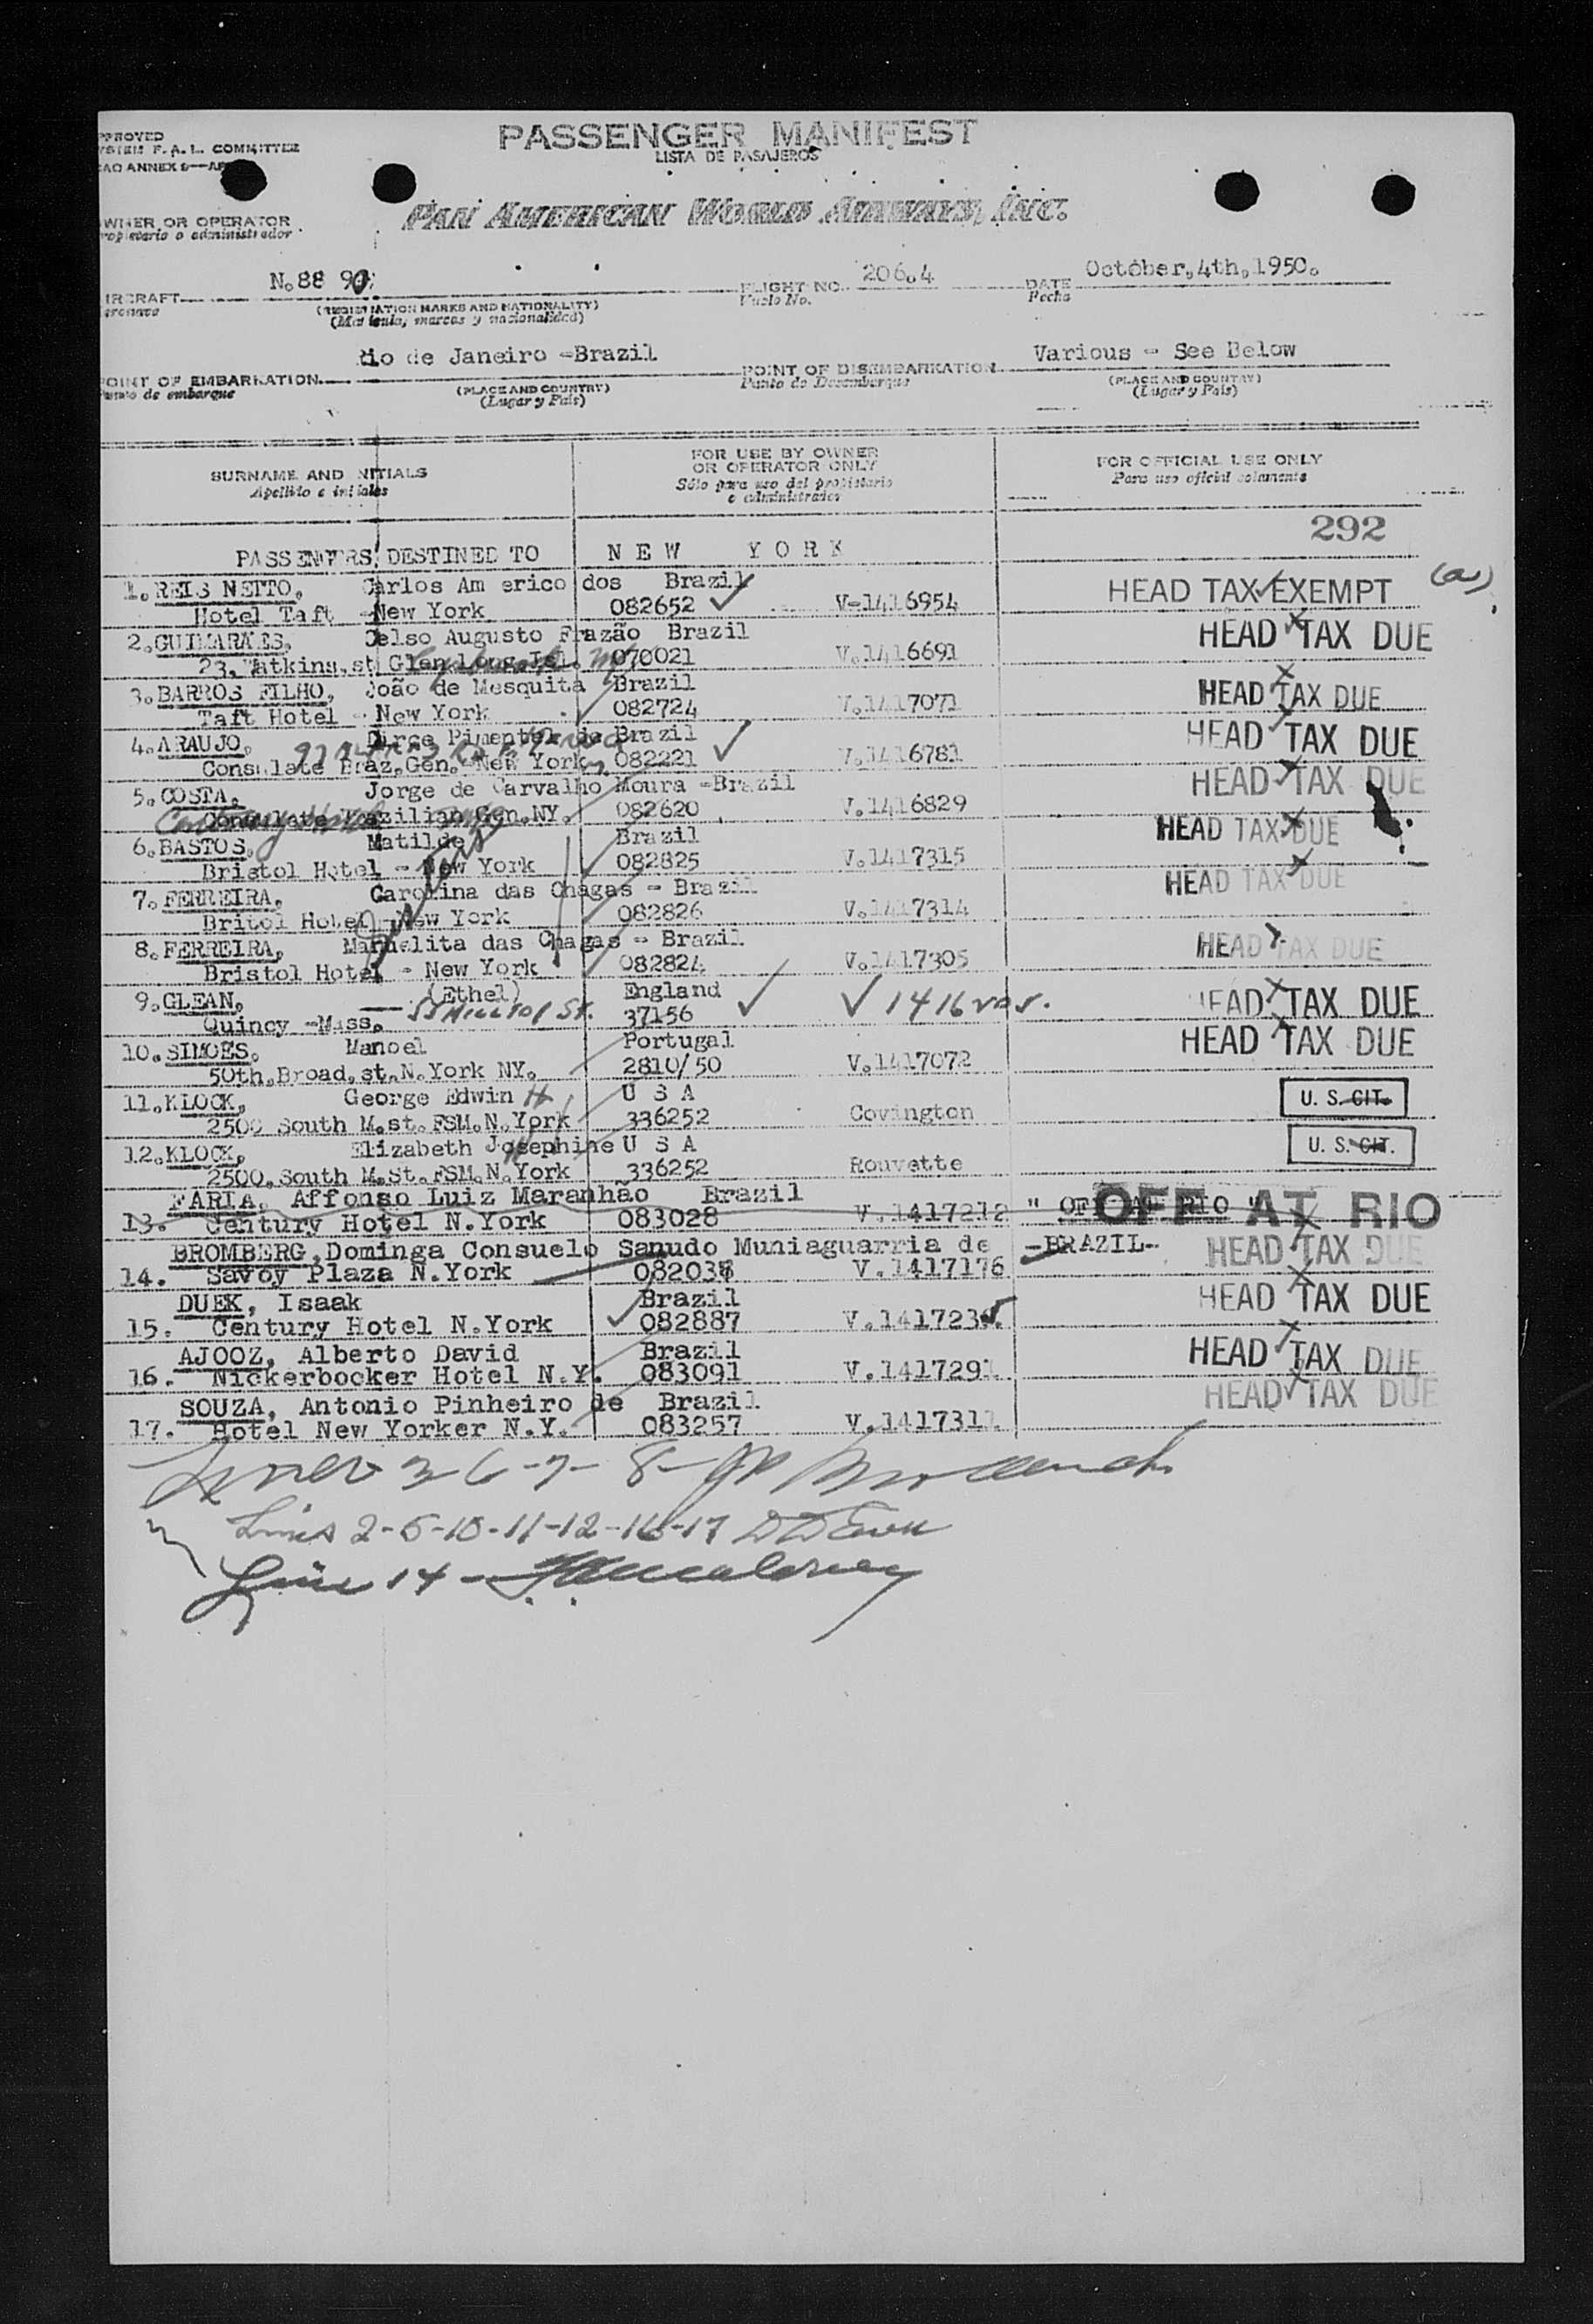 PASSENGER MANIFEST
LISTA DE PASAJEROS
F.A.L. COMMITTEE
ANNEX
OR OPERATOR
o administrador
PAN AMERICAN WORLD AIRWAYS, INC.
N.88 90
(REGISTRATION MARKS AND NATIONALITY)
(Matricula, marcas y nacionalidad)
FLIGHT NO. 206.4
Vuelo No.
DATE October,4th,1950.
Fecha
OF EMBARKATION
de embarque
de Janeiro -Brazil
(PLACE AND COUNTRY)
(Lugar y Pais)
POINT OF DISEMBARKATION Various - See Below
Punto de Desembarque
(PLACE AND COUNTRY)
(Lugar y Pais)
SURNAME AND INITIALS
Apellido e iniciales
FOR USE BY OWNER
OR OPERATOR ONLY
Sólo para uso del propietario
o administrador
FOR OFFICIAL USE ONLY
Para uso oficial solamente
292
PASSENGERS DESTINED TO N E W Y O R K
1. REIS NETTO, Carlos Am erico dos Brazil
Hotel Taft -New York 082652 V-1416954 HEAD TAX EXEMPT
2. GUIMARAES, Celso Augusto Frazão Brazil HEAD TAX DUE
23, Watkins,st Glen Long.Isl. 070021 V.1416691
3. BARROS FILHO, João de Mesquita Brazil HEAD TAX DUE
Taft Hotel - New York 082724 V.1417071
4. ARAUJO, Dirce Pimentel de Brazil HEAD TAX DUE
Consulate Braz.Gen. New York 082221 V.1416781
5. COSTA, Jorge de Carvalho Moura -Brazil HEAD TAX DUE
Consulate Brazilian Gen.NY. 082620 V.1416829
6. BASTOS, Matilde Brazil HEAD TAX DUE
Bristol Hotel - New York 082825 V.1417315
7. FERREIRA, Carolina das Chagas - Brazil HEAD TAX DUE
Britol Hotel - New York 082826 V.1417314
8. FERREIRA, Manuelita das Chagas - Brazil HEAD TAX DUE
Bristol Hotel - New York 082824 V.1417305
9. GLEAN, (Ethel) England HEAD TAX DUE
Quincy -Mass. 37156
10. SIMOES, Manoel Portugal HEAD TAX DUE
50th,Broad,st.N.York NY. 2810/50 V.1417072
11. KLOCK, George Edwin H U S A U. S. CIT.
2500 South M.st.FSM.N.York 336252 Covington
12. KLOCK, Elizabeth Josephine U S A U. S. CIT.
2500,South M.St.FSM.N.York 336252 Rouvette
FARIA, Affonso Luiz Maranhão Brazil
13. Century Hotel N.York 083028 V.1417212 " OFF AT RIO " OFF AT RIO
BROMBERG,Dominga Consuelo Sanudo Muniaguarria de -BRAZIL- HEAD TAX DUE
14. Savoy Plaza N.York V.1417176
DUEK, Isaak Brazil HEAD TAX DUE
15. Century Hotel N.York 082887
AJOOZ, Alberto David Brazil HEAD TAX DUE
16. Nickerbocker Hotel N.Y. 083091 V.1417291
SOUZA, Antonio Pinheiro de Brazil HEAD TAX DUE
17. Hotel New Yorker N.Y. 083257
Lines 2-5-10-11-12-16-17
Line 14 -